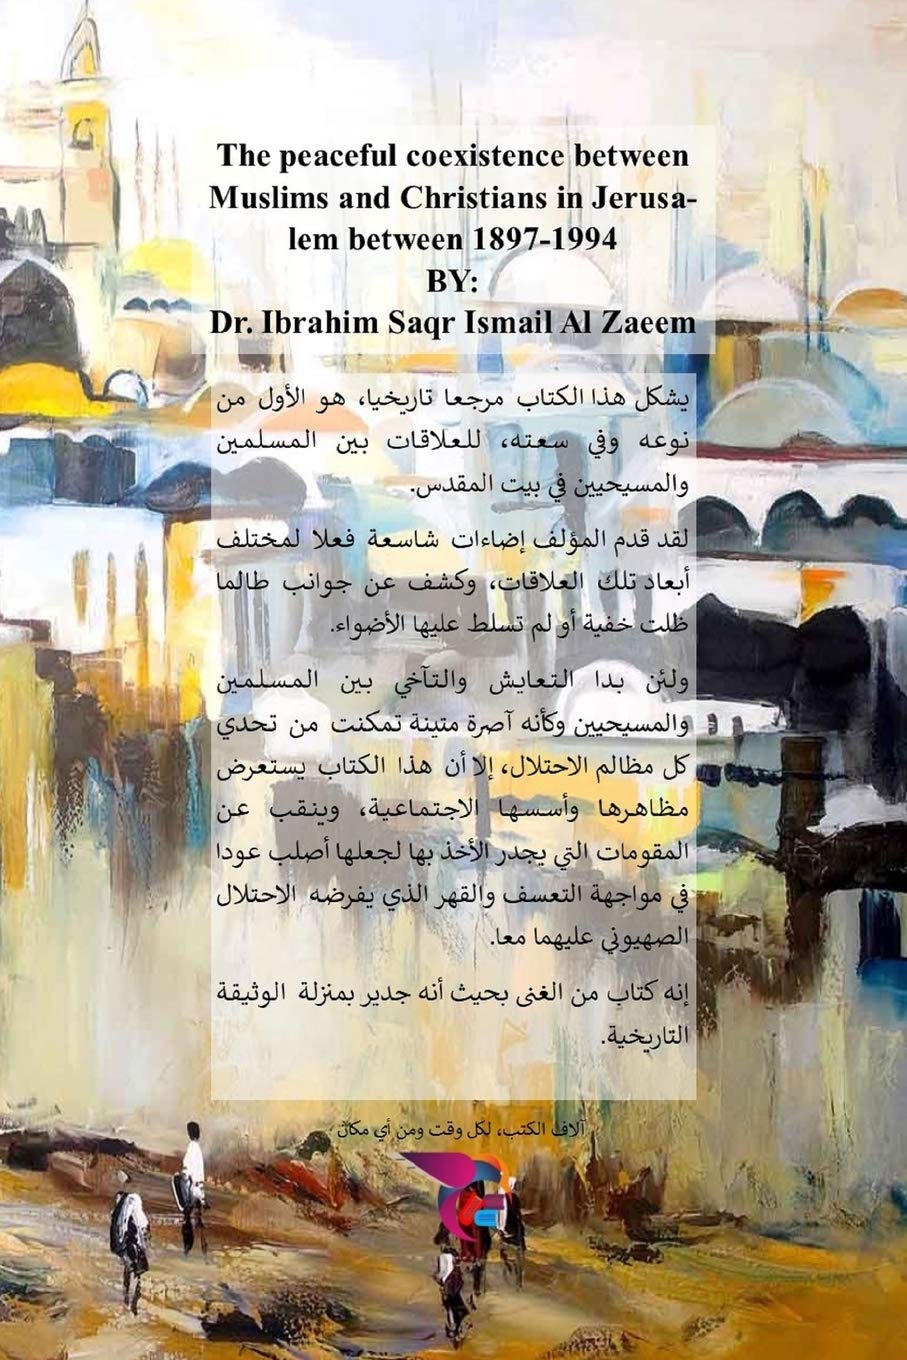 The peaceful coexistence between
Muslims and Christians in Jerusa-
lem between 1897-1994
BY:
Dr. Ibrahim Saqr Ismail Al Zaeem
يشكل هذا الكتاب مرجعا تاريخيا، هو الأول من
نوعه وفي سعته، للعلاقات بين المسلمين
والمسيحيين في بيت المقدس.
لقد قدم المؤلف إضاءات شاسعة فعلا لمختلف
أبعاد تلك العلاقات، وكشف عن جوانب طالما
ظلت خفية أو لم تسلط عليها الأضواء.
ولئن بدا التعايش والتآخي بين المسلمين
والمسيحيين وكأنه آصرة متينة تمكنت من تحدي
كل مظالم الاحتلال، إلا أن هذا الكتاب يستعرض
مظاهرها وأسسها الاجتماعية، وينقب عن
المقومات التي يجدر الأخذ بها لجعلها أصلب عودا
في مواجهة التعسف والقهر الذي يفرضه الاحتلال
الصهيوني عليهما معا.
إنه كتاب من الغنى بحيث أنه جدير بمنزلة الوثيقة
التاريخية.
آلاف الكتب، لكل وقت ومن أي مكان